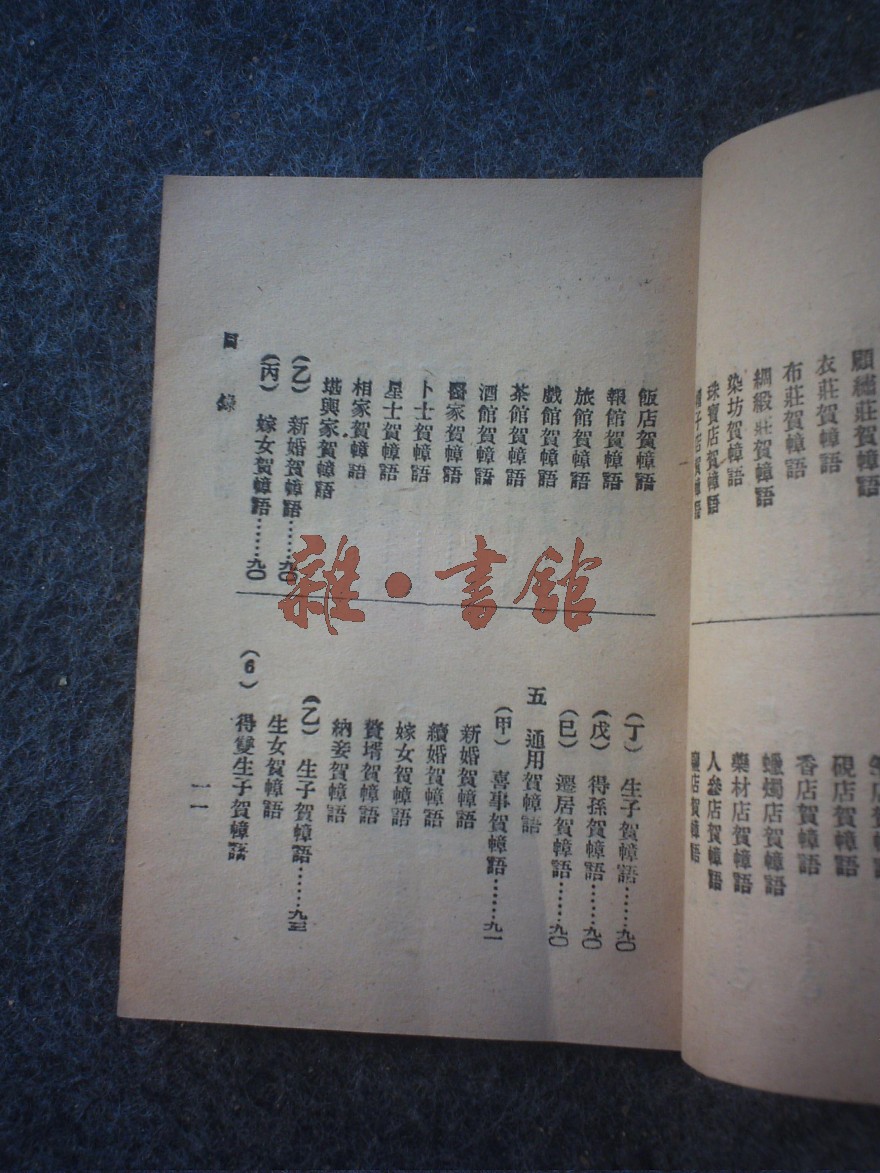 顧繡莊賀幛語
衣莊賀幛語
布莊賀幛語
綢緞莊賀幛語
染坊賀幛語
珠寶店賀幛語
子店賀幛語
店賀幛語
硯店賀幛語
香店賀幛語
蠟燭店賀幛語
藥材店賀幛語
人參店賀幛語
店賀幛語
飯店賀幛語
報館賀幛語
旅館賀幛語
戲館賀幛語
茶館賀幛語
酒館賀幛語
醫家賀幛語
卜士賀幛語
星士賀幛語
相家賀幛語
堪輿家賀幛語
(乙) 新婚賀幛語……九〇
(丙) 嫁女賀幛語……九〇
(丁) 生子賀幛語……九〇
(戊) 得孫賀幛語……九〇
(巳) 遷居賀幛語……九〇
五 通用賀幛語
(甲) 喜事賀幛語……九一
新婚賀幛語
續婚賀幛語
嫁女賀幛語
贅壻賀幛語
納妾賀幛語
(乙) 生子賀幛語……九三
生女賀幛語
(6) 得雙生子賀幛語
目錄
一一
雜·書館